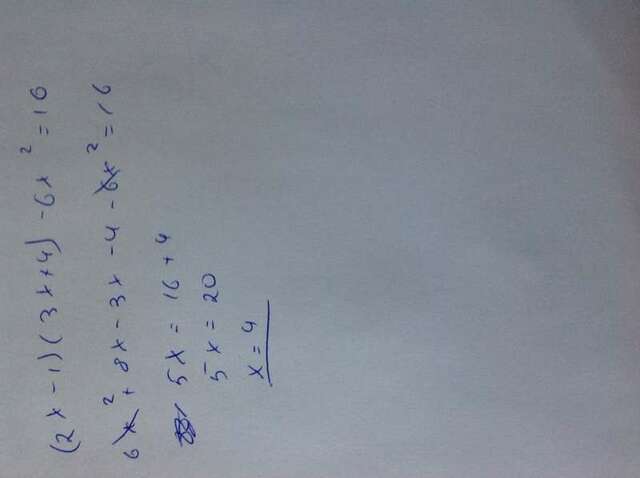 (2x-1)(3x+4)-6x²=16
6x²+8x-3x-4-6x²=16
5x=16+4
5x=20
x=4